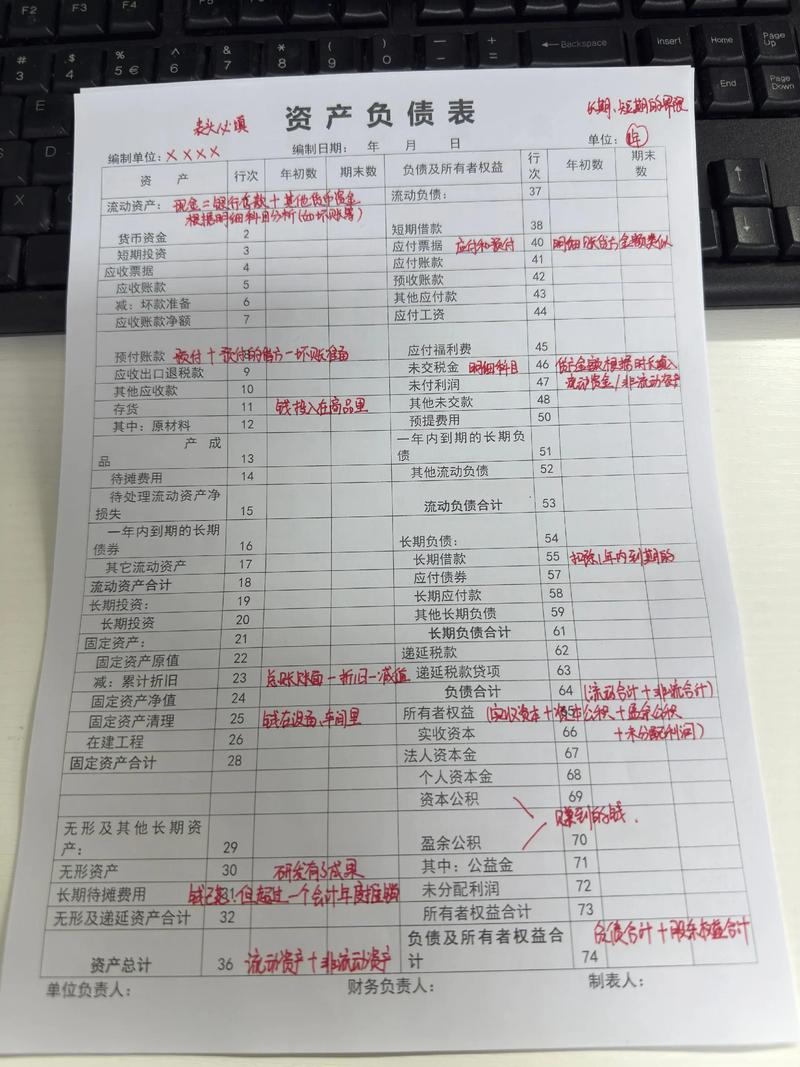 F2
F3
F4
F5
F6
F7
F8
F9
F10
F11
F12
Backspace
Insert
Home
Page Up
End
Page Down
表头必填
资产负债表
长期、短期的界限
编制单位：××××
编制日期： 年 月 日
单位：1年
资 产 行次 年初数 期末数 负债及所有者权益 行次 年初数 期末数
流动资产： 现金=银行存款+其他货币资金 流动负债： 37
根据明细科目分析(如坏账等)
货币资金 2 短期借款 38
短期投资 3 应付票据 应付和预付 40 明细账贷方金额类似
应收票据 4 应付账款 41
应收账款 5 预收账款 42
减：坏款准备 6 其他应付款 43
应收账款净额 7 应付工资 44
预付账款 预付+预付的借方-坏账准备 应付福利费 45
应收出口退税款 9 未交税金 明细科目 46 贷方金额根据时长填入
其他应收款 10 未付利润 47 流动资金/非流动资产
存货 11 钱投入在商品里 其他未交款 48
其中：原材料 12 预提费用 50
产成品 13 一年内到期的长期负债 51
待摊费用 14 其他流动负债 52
待处理流动资产净损失 15 流动负债合计 53
一年内到期的长期债券 16 长期负债： 54
其它流动资产 17 长期借款 55 扣除1年内到期的
流动资产合计 18 应付债券 57
长期投资： 19 长期应付款 58
长期投资 20 其他长期负债 59
固定资产： 21 长期负债合计 61
固定资产原值 22 递延税款 62
减：累计折旧 23 总账账面-折旧-减值 递延税款贷项 63
固定资产净值 24 负债合计 64 (流动合计+非流合计)
固定资产清理 25 钱在设备、车间里 所有者权益 (实收资本+资本公积+盈余公积
在建工程 26 实收资本 66 +未分配利润)
固定资产合计 28 法人资本金 67
个人资本金 68
资本公积 69
赚到的钱.
无形及其他长期资产： 29 盈余公积 70
无形资产 30 研发有了成果 其中：公益金 71
长期待摊费用 但超过一个会计年度 未分配利润 72
无形及递延资产合计 32 所有者权益合计 73
资产总计 36 流动资产+非流动资产 负债及所有者权益合计 74 负债合计+股东权益合计
单位负责人： 财务负责人： 制表人：